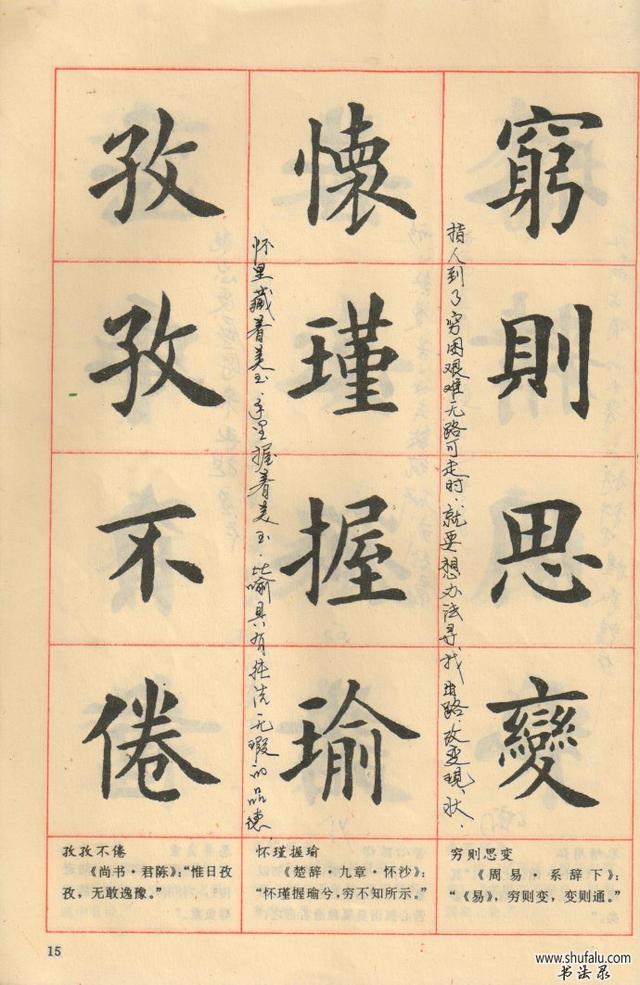 窮則思變
指人到了穷困艰难无路可走时.就要想办法寻找出路.改变现状.
懷瑾握瑜
怀里藏着美玉.手里握着美玉.比喻具有纯洁无瑕的品德.
孜孜不倦
孜孜不倦
《尚书·君陈》:“惟日孜
孜，无敢逸豫。”
怀瑾握瑜
《楚辞·九章·怀沙》:
“怀瑾握瑜兮，穷不知所示。”
穷则思变
《周易·系辞下》:
“《易》，穷则变，变则通。”
15
www.shufalu.com
书法录